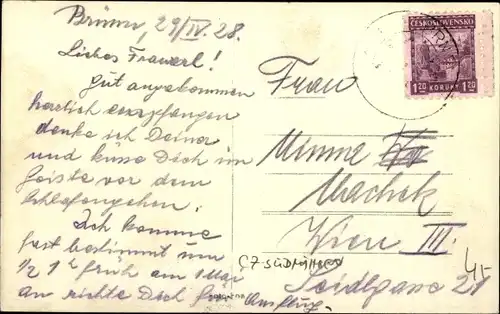 Brünn, 29/IV. 28.
Liebes Frauerl!
Gut angekommen
herzlich empfangen
denke ich Deiner
und küsse Dich im
Geiste vor dem
Schlafengehen.
Ich komme
fast bestimmt um
1/2 1h früh am Mai
an richte Dich für
Ausflug.
ČESKOSLOVENSKO
1.20 KORUNY 1.20
Frau
Minna
Machek
Wien III.
Seidlgasse 21
CZ SÜDMÄHREN
45